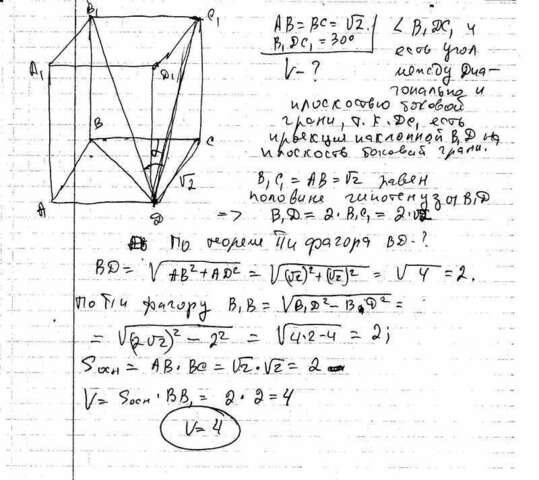 B₁
C₁
A₁
D₁
B
C
A
D
α
√2
AB = BC = √2.
B₁DC₁ = 30°
V - ?
∠ B₁DC₁ и
есть угол
между диа-
гональю и
плоскостью боковой
грани, т.к. DC₁ есть
проекция наклонной B₁D на
плоскость боковой грани.
B₁C₁ = AB = √2 равен
половине гипотенузы B₁D
=> B₁D = 2·B₁C₁ = 2·√2
По теореме Пифагора BD-?
BD = √AB² + AD² = √(√2)² + (√2)² = √4 = 2.
По Пифагору B₁B = √B₁D² - BD² =
= √(2√2)² - 2² = √4·2-4 = 2;
Sосн = AB·BC = √2·√2 = 2
V = Sосн·BB₁ = 2·2 = 4
V = 4